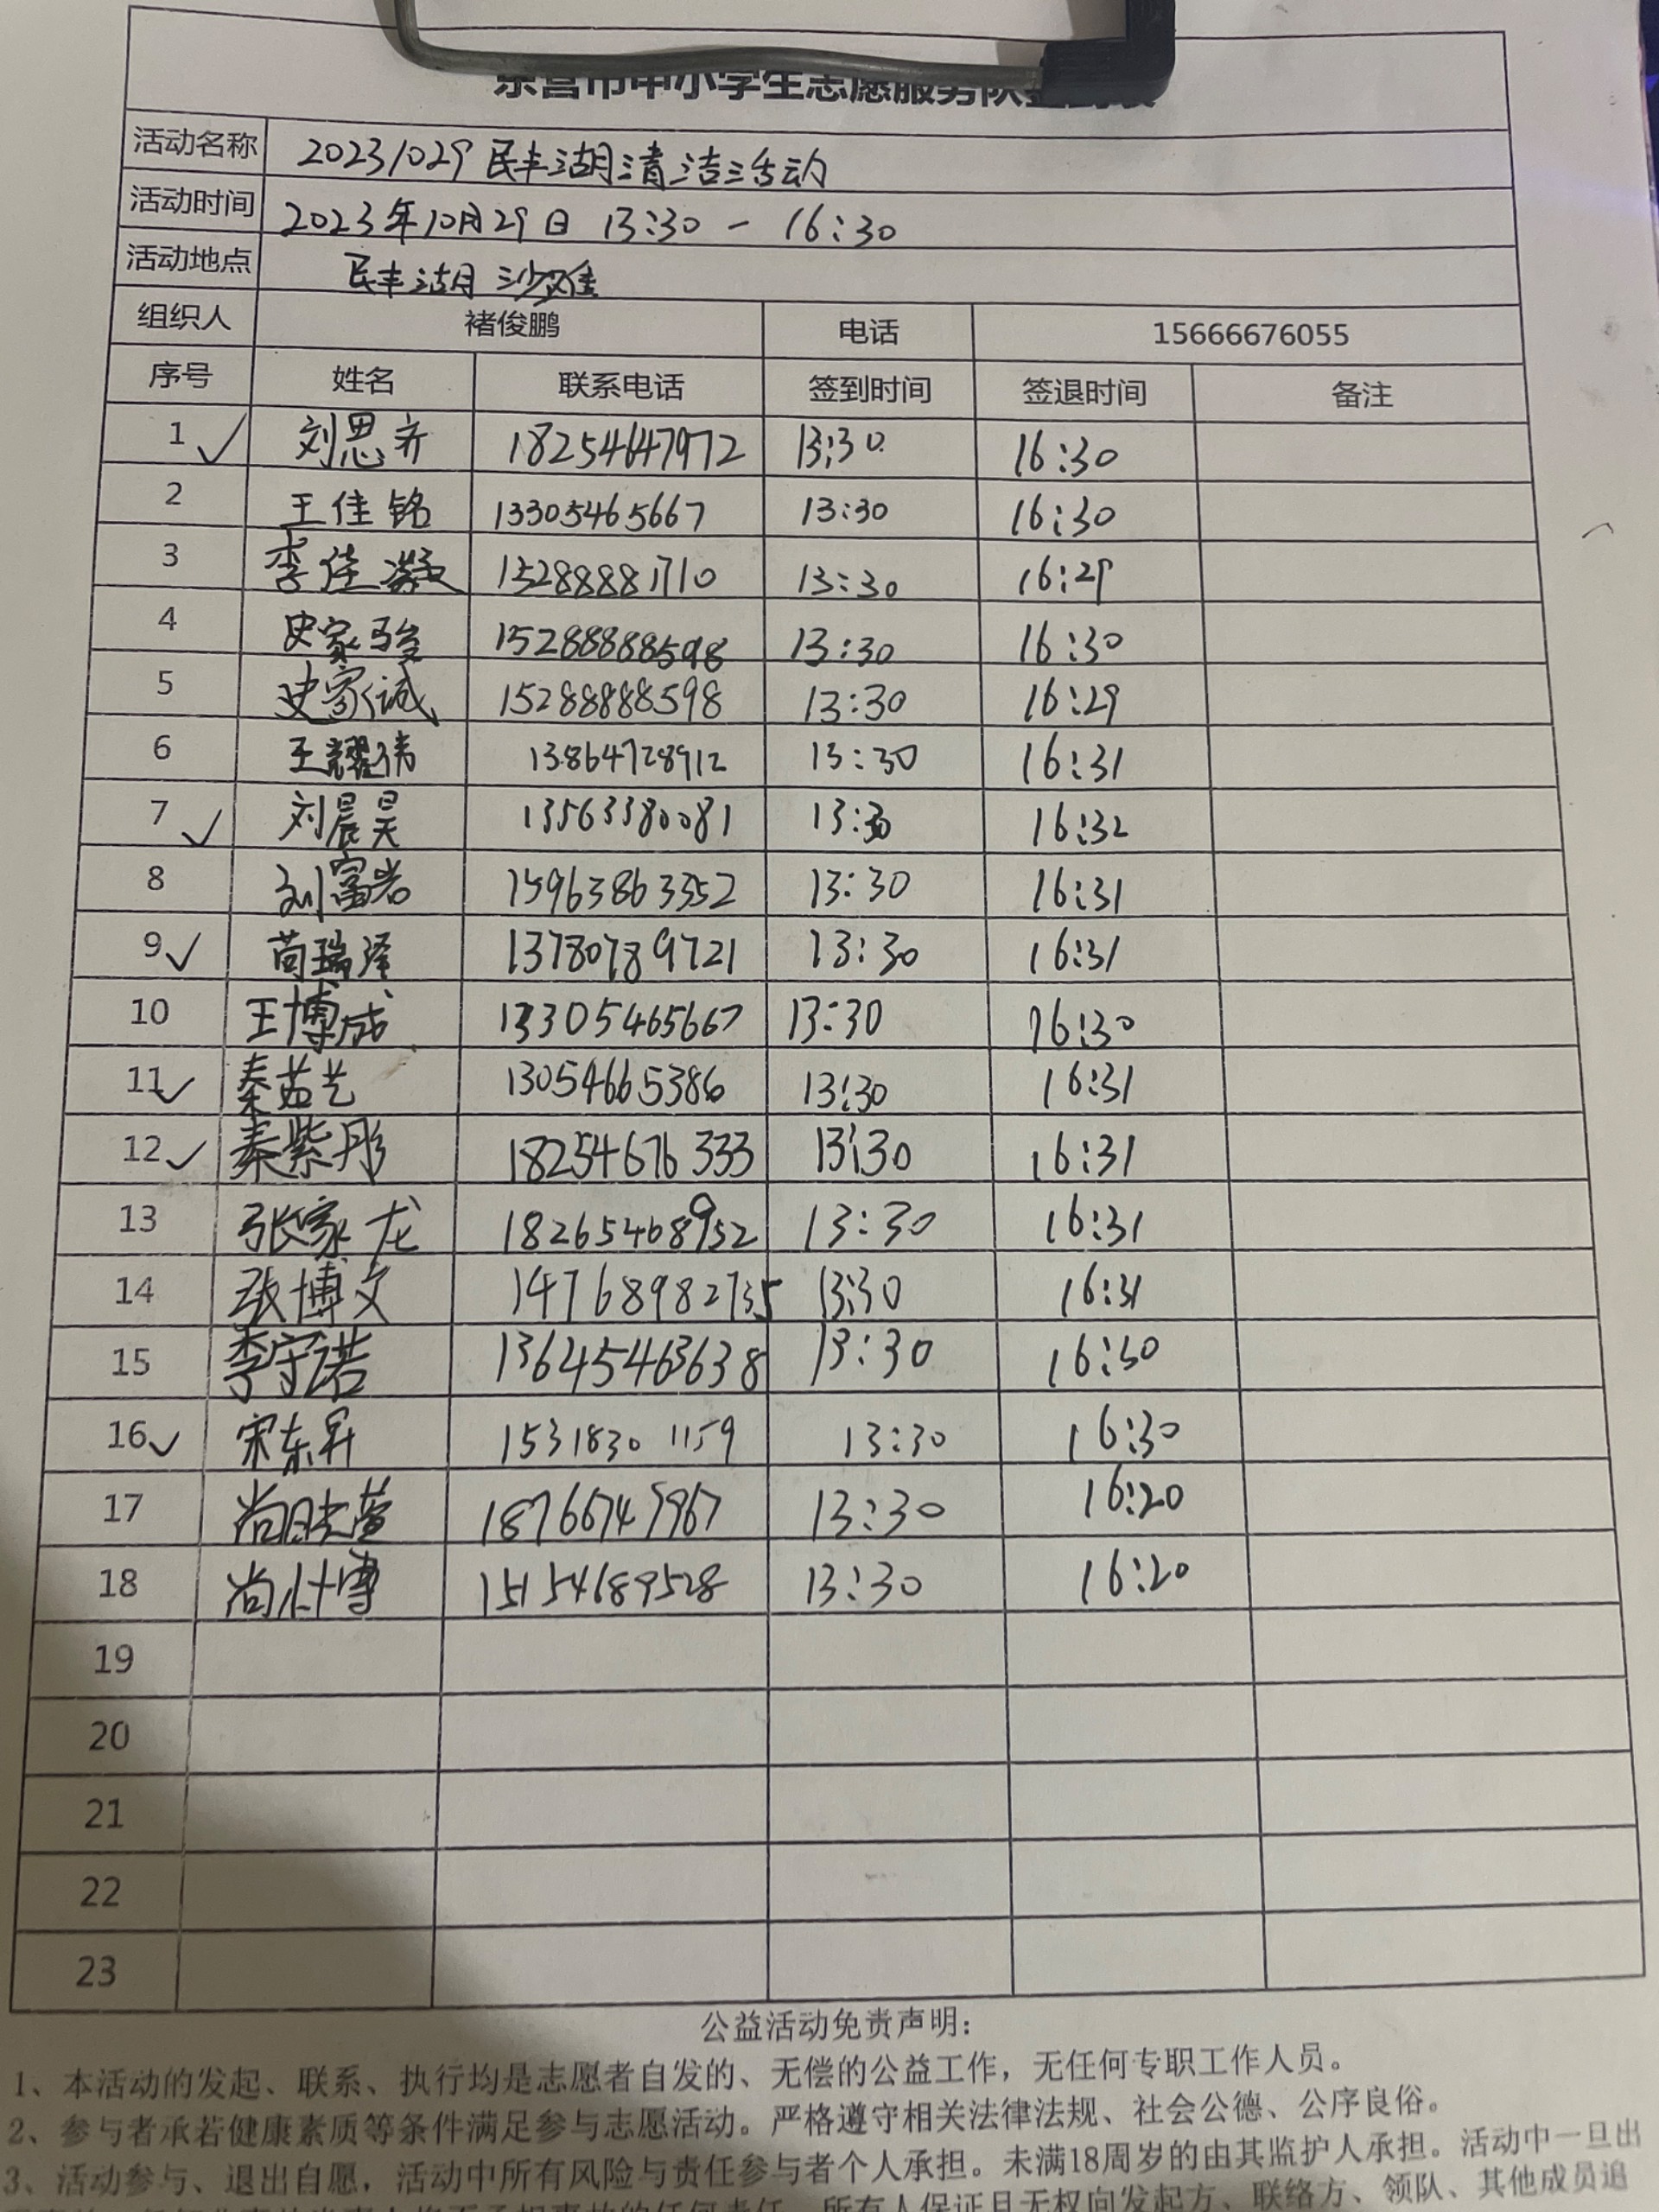 东营市中小学生志愿服务队签到表
活动名称 20231029民丰湖清洁活动
活动时间 2023年10月29日 13:30 - 16:30
活动地点 民丰湖沙滩
组织人 褚俊鹏 电话 15666676055
序号 姓名 联系电话 签到时间 签退时间 备注
1 ✓ 刘思齐 18254647972 13:30 16:30
2 王佳铭 13305465667 13:30 16:30
3 李佳凝 15288881710 13:30 16:29
4 史家骏 15288888598 13:30 16:30
5 史家诚 15288888598 13:30 16:29
6 王耀伟 13864728912 13:30 16:31
7 ✓ 刘晨昊 13563380081 13:30 16:32
8 刘富岩 15963863352 13:30 16:31
9 ✓ 苘瑞泽 13780789721 13:30 16:31
10 王博成 13305465667 13:30 16:30
11 ✓ 秦茹艺 13054665386 13:30 16:31
12 ✓ 秦紫彤 18254676333 13:30 16:31
13 张家龙 18265468952 13:30 16:31
14 张博文 14768982735 13:30 16:31
15 李守诺 13645463638 13:30 16:30
16 ✓ 宋东昇 15318301159 13:30 16:30
17 尚 萱 18766745967 13:30 16:20
18 尚 博 15154689528 13:30 16:20
19
20
21
22
23
公益活动免责声明：
1、本活动的发起、联系、执行均是志愿者自发的、无偿的公益工作，无任何专职工作人员。
2、参与者承若健康素质等条件满足参与志愿活动。严格遵守相关法律法规、社会公德、公序良俗。
3、活动参与、退出自愿，活动中所有风险与责任参与者个人承担。未满18周岁的由其监护人承担。活动中一旦出
所有人保证且无权向发起方、联络方、领队、其他成员追